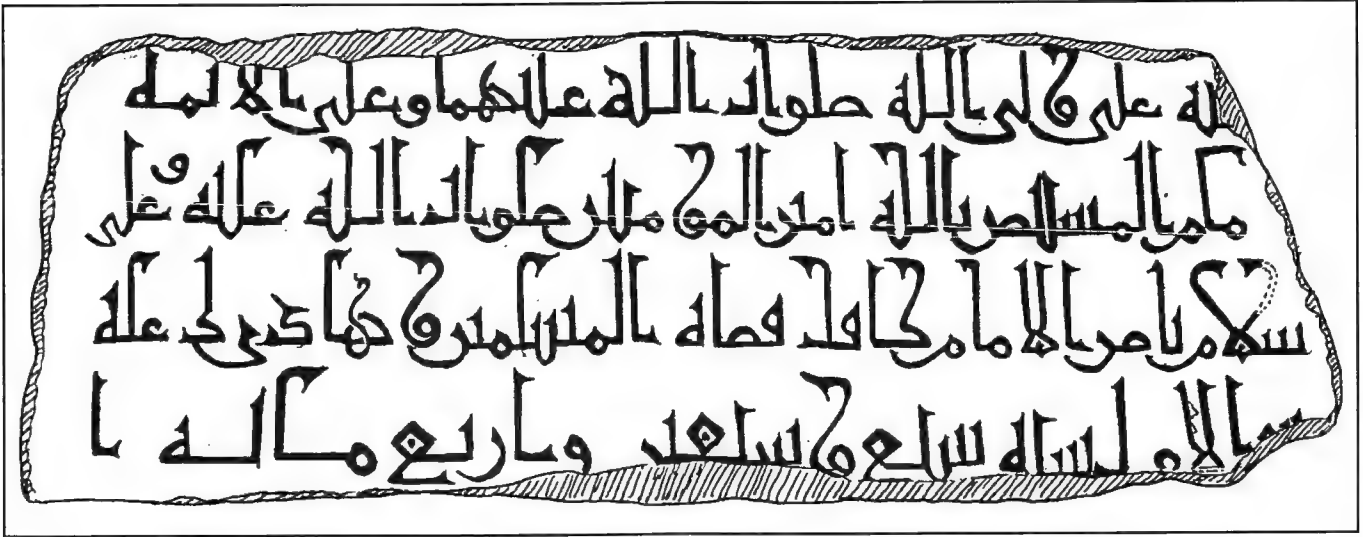 لله علي ولي الله صلوات الله عليهما وعلى الائمة
مام المستنصر بالله امير المؤمنين صلوات الله عليه وعلى
سلام ناصر الامام كافل قضاة المسلمين وهادي دعاة
الاول سنة سبع وسبعين واربع مائة ا